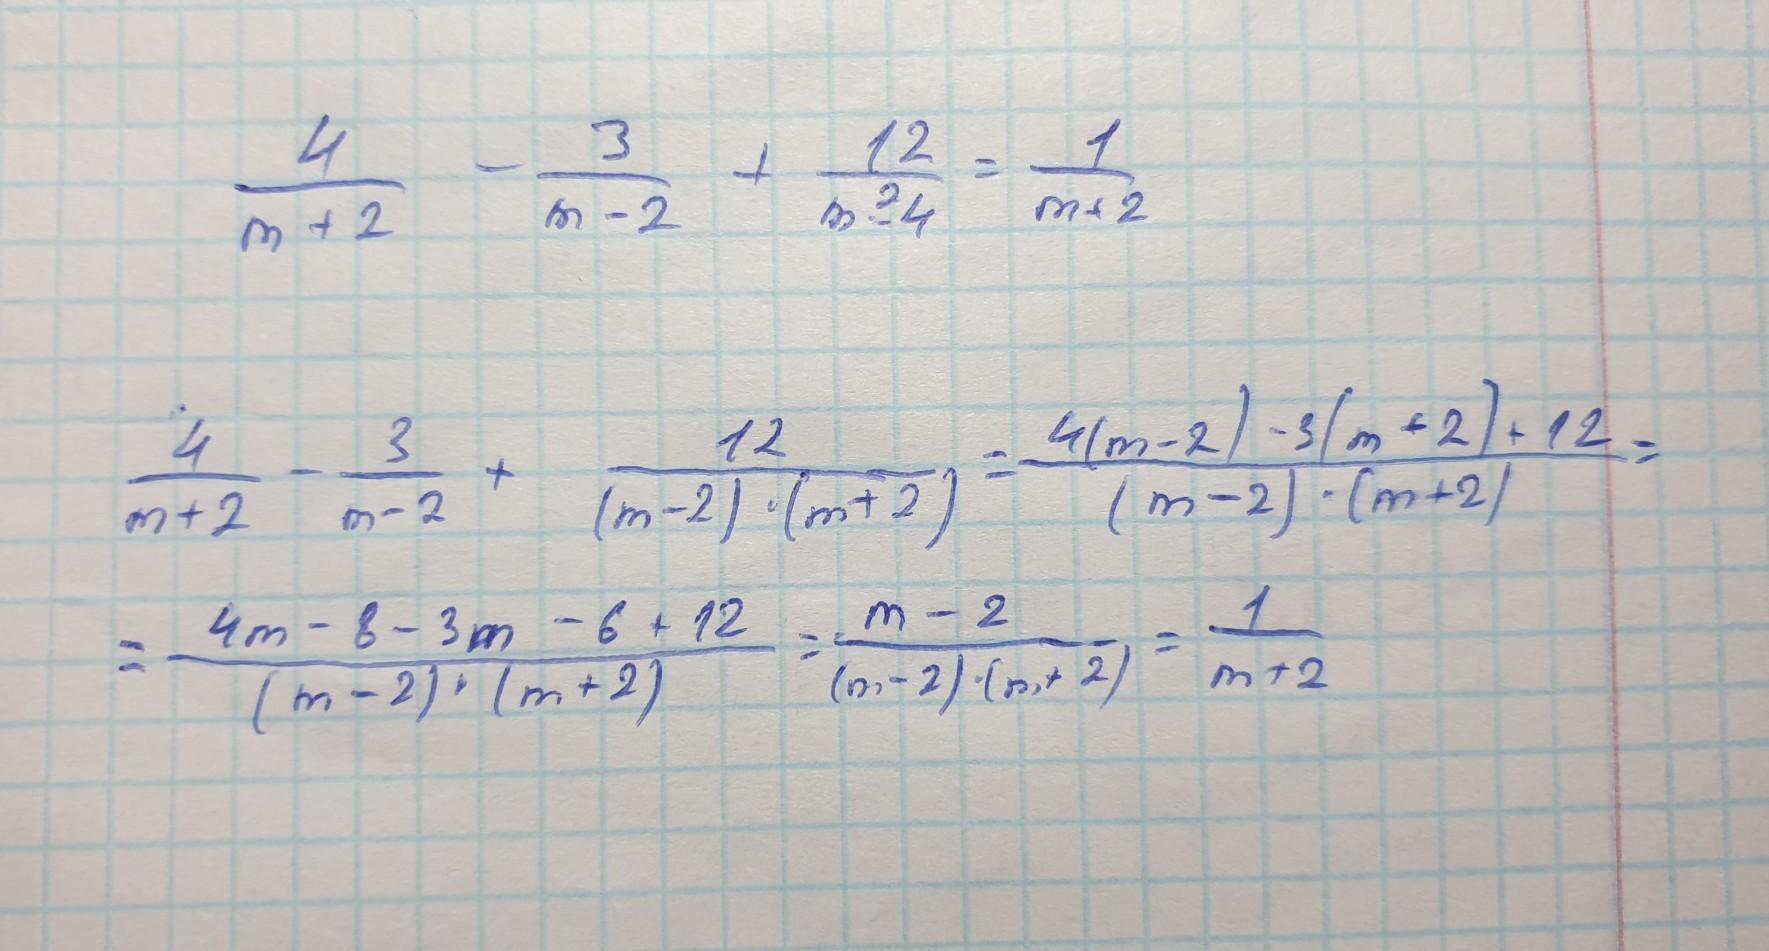 4/(m+2) - 3/(m-2) + 12/(m²-4) = 1/(m+2)
4/(m+2) - 3/(m-2) + 12/((m-2)·(m+2)) = (4(m-2)-3(m+2)+12)/((m-2)·(m+2)) =
= (4m-8-3m-6+12)/((m-2)·(m+2)) = (m-2)/((m-2)·(m+2)) = 1/(m+2)